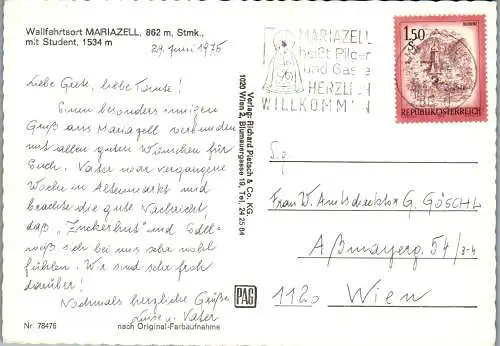 Wallfahrtsort MARIAZELL, 862 m, Stmk.,
mit Student, 1534 m
29. Juni 1975
Liebe Grete, liebe Tante!
Einen besonders innigen
Gruß aus Mariazell verbunden
mit allen guten Wünschen für
Euch. Vater war vergangene
Woche in Altenmarkt und
brachte die gute Nachricht,
daß "Zuckerhut" und Edel-
weiß sich bei uns sehr wohl
fühlen. Wir sind sehr froh
darüber!
Nochmals herzliche Grüße
Luise u. Vater
Nr. 78476
nach Original-Farbaufnahme
Verlag: Richard Pietsch & Co. KG.
1020 Wien 2, Blumauergasse 19, Tel. 24 25 84
PAG
MARIAZELL
heißt Pilger
und Gäste
HERZLICH
WILLKOMMEN
1.50
S
REPUBLIK ÖSTERREICH
Frau W. Amtsdirektor G. GÖSCHL
Aßmayerg. 54/3-4
1120 Wien